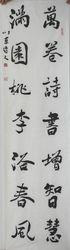 萬卷詩書增智慧
滿園桃李浴春風